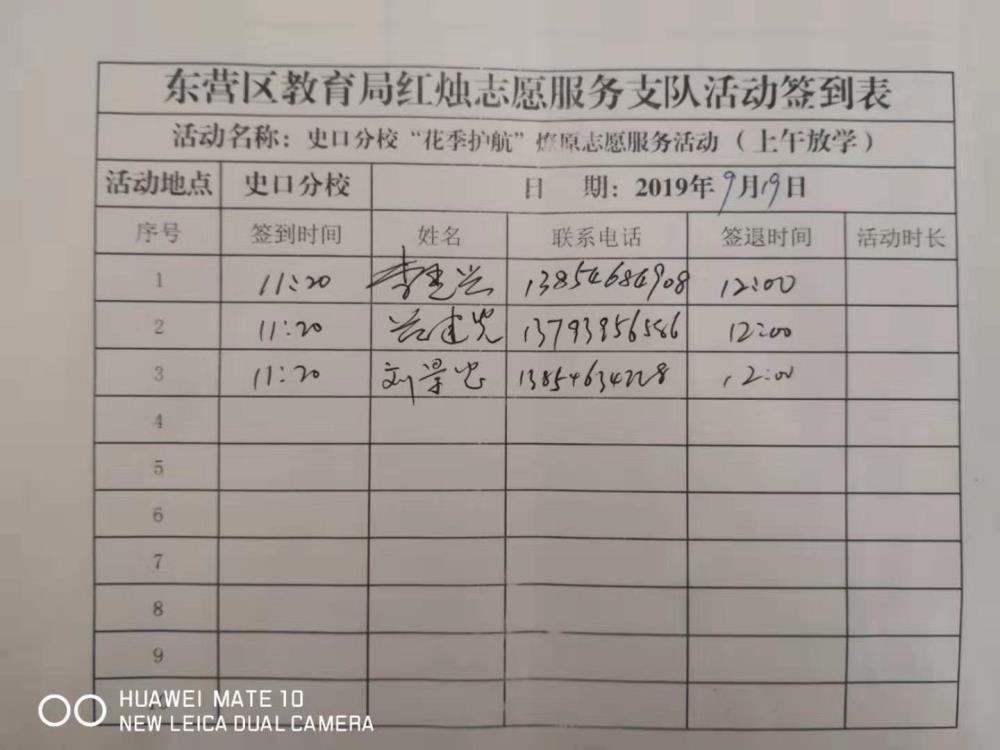 东营区教育局红烛志愿服务支队活动签到表
活动名称：史口分校“花季护航”燎原志愿服务活动（上午放学）
活动地点 史口分校 日 期：2019年9月19日
序号 签到时间 姓名 联系电话 签退时间 活动时长
1 11:20 李建兴 13854684908 12:00
2 11:20 建光 13793956586 12:00
3 11:20 刘景忠 13854634228 12:00
4
5
6
7
8
9
10
HUAWEI MATE 10
NEW LEICA DUAL CAMERA